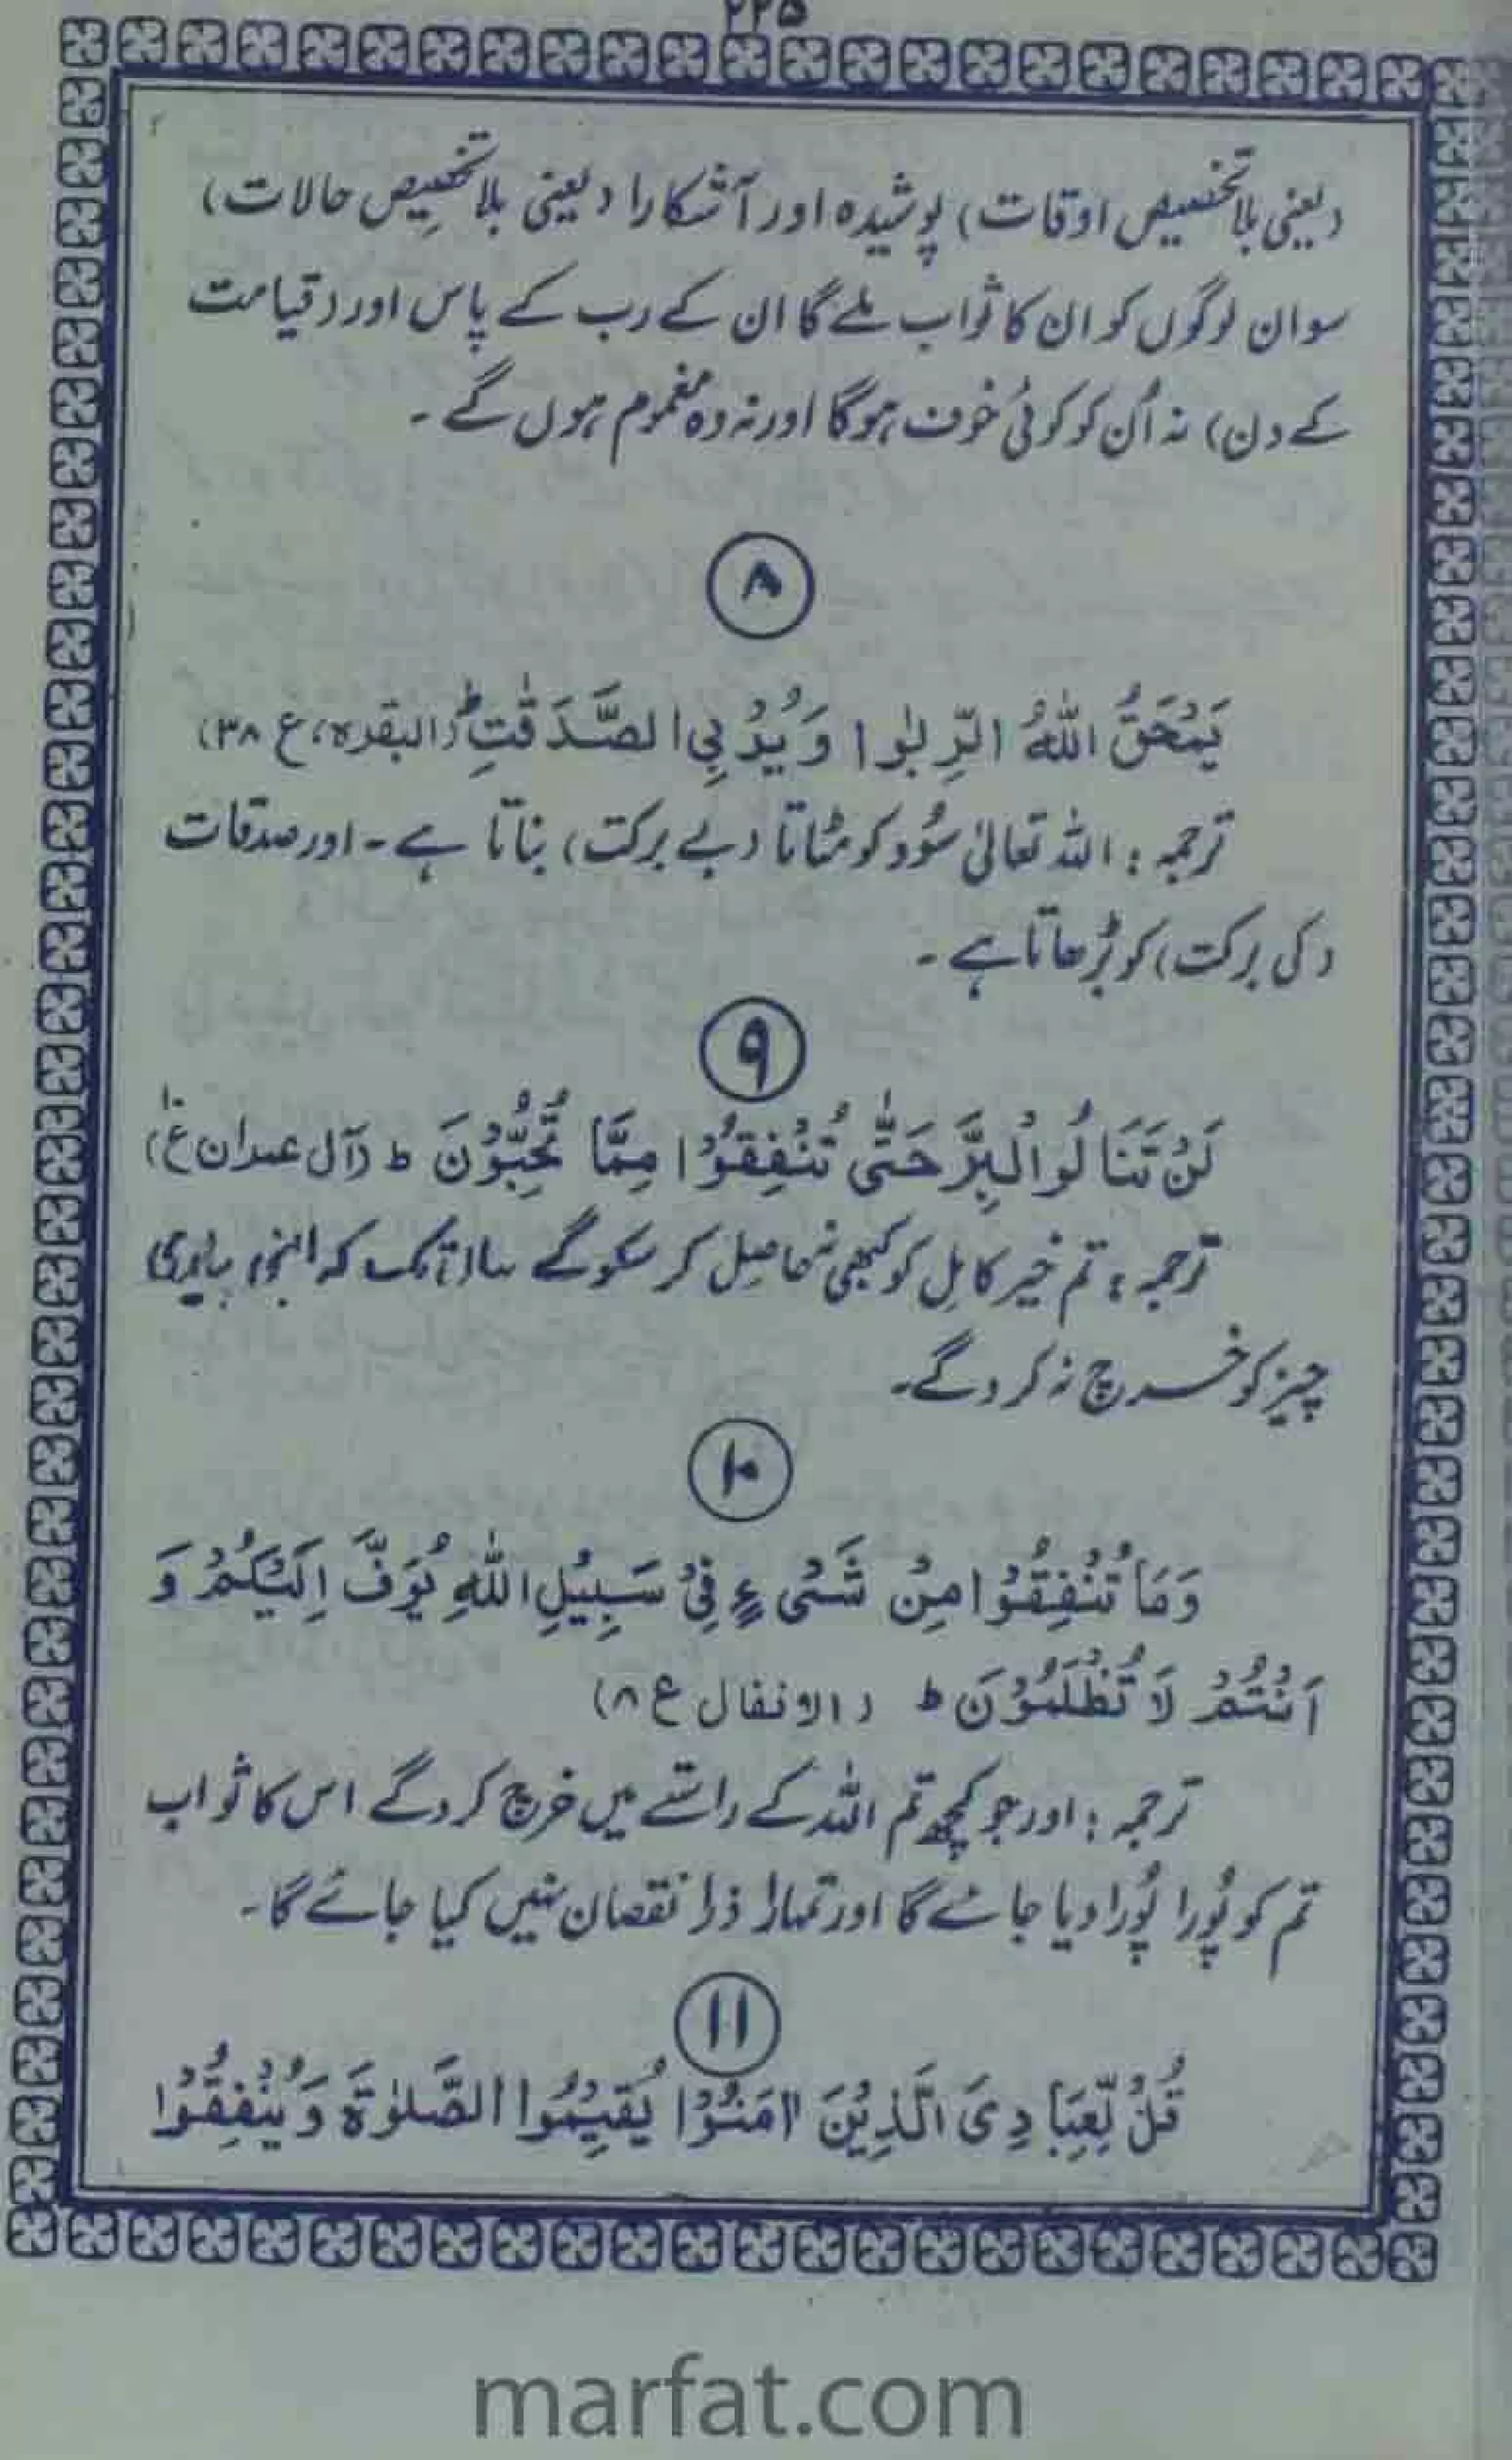 ۲۲۵
(یعنی بلا تخصیص اوقات) پوشیدہ اور آشکارا (یعنی بلا تخصیص حالات)
سو ان لوگوں کو ان کا ثواب ملے گا ان کے رب کے پاس اور (قیامت
کے دن) نہ اُن کو کوئی خوف ہوگا اور نہ وہ مغموم ہوں گے۔
۸
يَمْحَقُ اللهُ الرِّبٰوا وَيُرْبِي الصَّدَقٰتِ ط (البقرہ، ع ۳۸)
ترجمہ: اللہ تعالیٰ سُود کو مٹاتا (بے برکت) بناتا ہے۔ اور صدقات
(کی برکت) کو بڑھاتا ہے۔
۹
لَنْ تَنَالُوا الْبِرَّ حَتّٰى تُنْفِقُوْا مِمَّا تُحِبُّوْنَ ط (آل عمران ع ۱۰)
ترجمہ: تم خیر کامل کو کبھی نہ حاصل کر سکو گے یہاں تک کہ اپنی پیاری
چیز کو خرچ نہ کرو گے۔
۱۰
وَمَا تُنْفِقُوْا مِنْ شَىْءٍ فِىْ سَبِيْلِ اللهِ يُوَفَّ اِلَيْكُمْ وَ
اَنْتُمْ لَا تُظْلَمُوْنَ ط (الانفال ع ۸)
ترجمہ: اور جو کچھ تم اللہ کے راستے میں خرچ کرو گے اس کا ثواب
تم کو پُورا پُورا دیا جائے گا اور تمہارا ذرا نقصان نہیں کیا جائے گا۔
۱۱
قُلْ لِّعِبَادِىَ الَّذِيْنَ اٰمَنُوْا يُقِيْمُوا الصَّلٰوةَ وَيُنْفِقُوْا
marfat.com